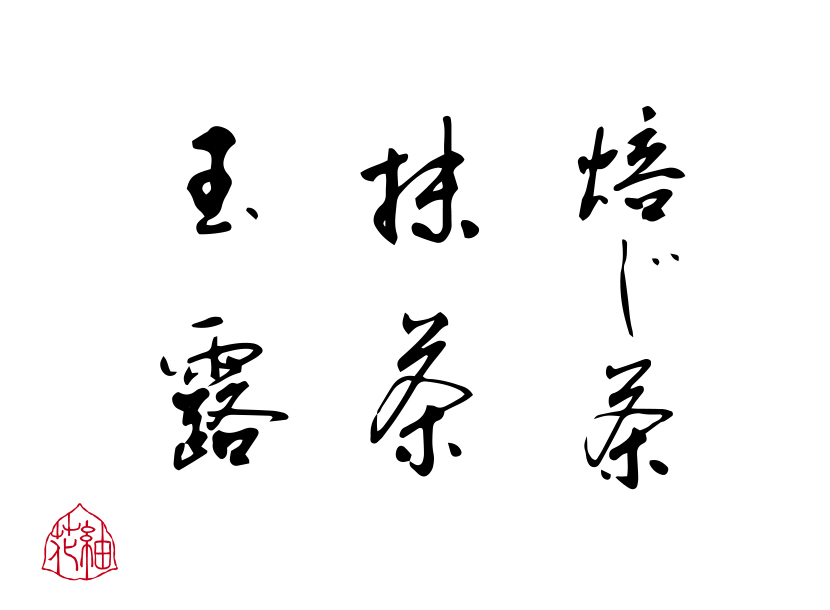 焙じ茶
抹茶
玉露
花紬